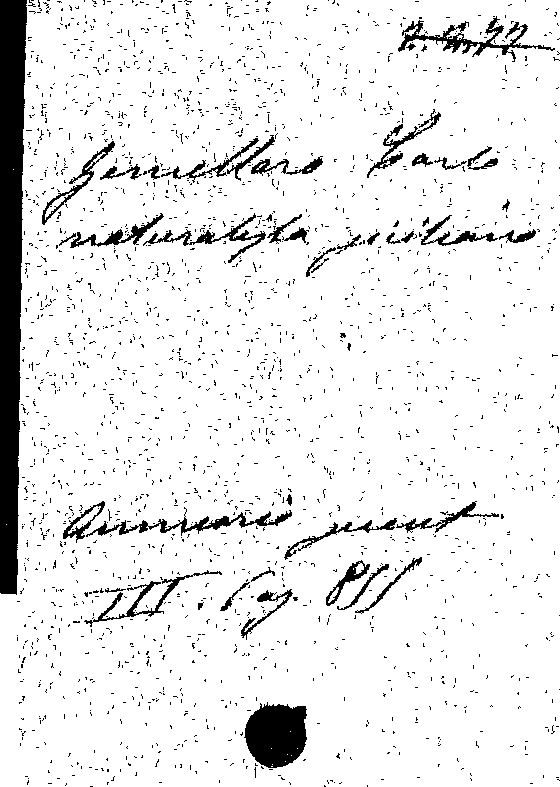 2.2.77
Gemellaro Carlo
naturalista siciliano
Annuario scient
III. Pag. 855